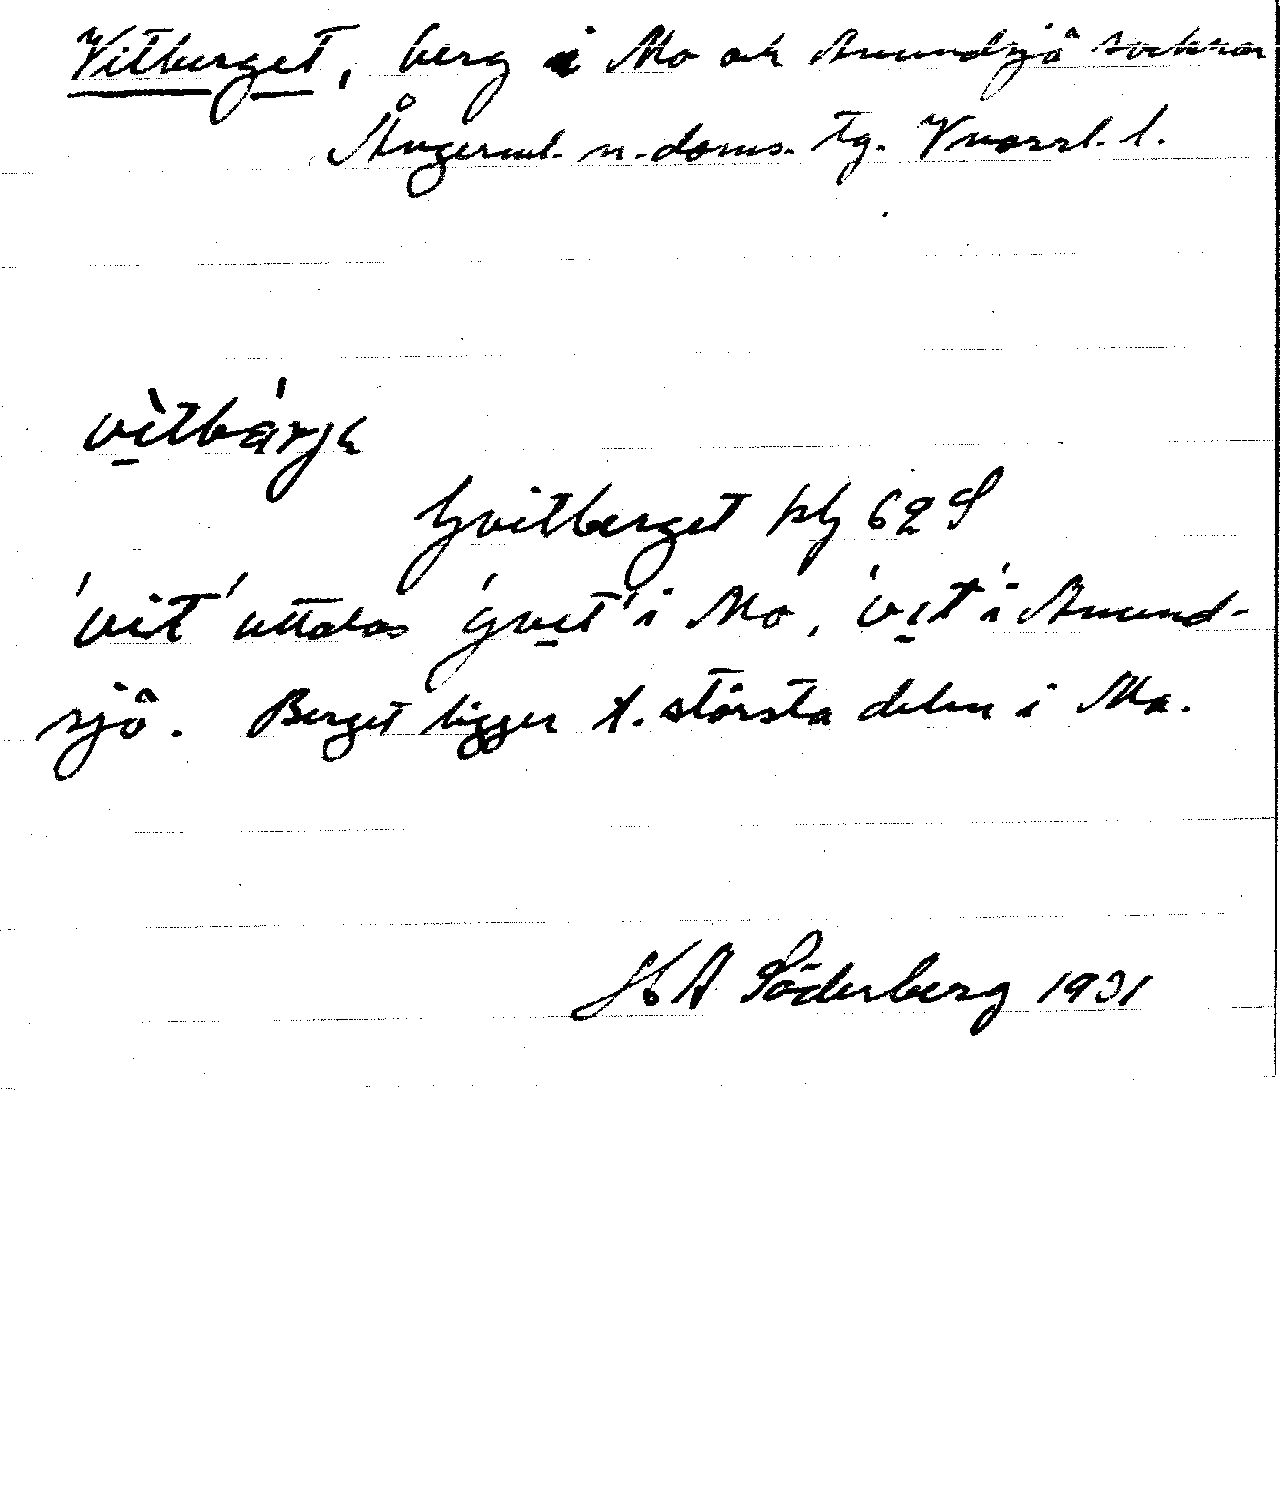 Vitberget, berg i Mo och Anundsjö socknar
Ångerml. n. doms. tg. Vnorrl. l.
vìtbárjə
Gvitberget blz 62 S
'vit' uttalas 'gvit' i Mo, 'vit' i Anund-
sjö. Berget ligger t. största delen i Mo.
H A Söderberg 1931